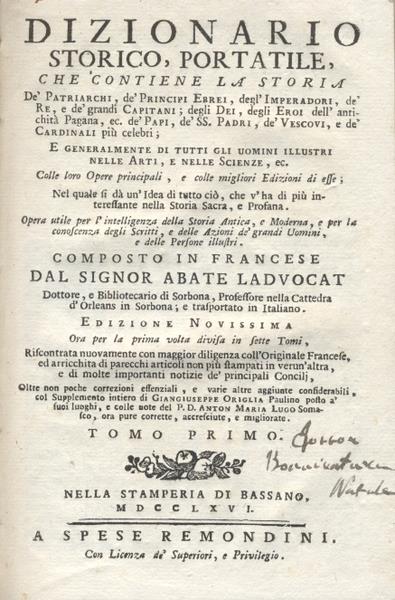 DIZIONARIO
STORICO, PORTATILE,
CHE CONTIENE LA STORIA
De' PATRIARCHI, de' PRINCIPI EBREI, degl' IMPERADORI, de'
RE, e de' grandi CAPITANI; degli DEI, degli EROI dell' anti-
chità Pagana, ec. de' PAPI, de' SS. PADRI, de' VESCOVI, e de'
CARDINALI più celebri;
E GENERALMENTE DI TUTTI GLI UOMINI ILLUSTRI
NELLE ARTI, E NELLE SCIENZE, ec.
Colle loro Opere principali, e colle migliori Edizioni di eſſe;
Nel quale ſi dà un' Idea di tutto ciò, che v' ha di più in-
tereſſante nella Storia Sacra, e Profana.
Opera utile per l' intelligenza della Storia Antica, e Moderna, e per la
conoſcenza degli Scritti, e delle Azioni de' grandi Uomini,
e delle Perſone illuſtri.
COMPOSTO IN FRANCESE
DAL SIGNOR ABATE LADVOCAT
Dottore, e Bibliotecario di Sorbona, Profeſſore nella Cattedra
d' Orleans in Sorbona; e traſportato in Italiano.
EDIZIONE NOVISSIMA
Ora per la prima volta diviſa in ſette Tomi,
Riſcontrata nuovamente con maggior diligenza coll' Originale Franceſe,
ed arricchita di parecchi articoli non più ſtampati in verun' altra,
e di molte importanti notizie de' principali Concilj,
Oltre non poche correzioni eſſenziali, e varie altre aggiunte conſiderabili,
col Supplemento intiero di GIANGIUSEPPE ORIGLIA Paulino poſto a'
ſuoi luoghi, e colle note del P. D. ANTON MARIA LUGO Soma-
ſco, ora pure corrette, accreſciute, e migliorate.
TOMO PRIMO.
NELLA STAMPERIA DI BASSANO,
MDCCLXVI.
A SPESE REMONDINI.
Con Licenza de' Superiori, e Privilegio.